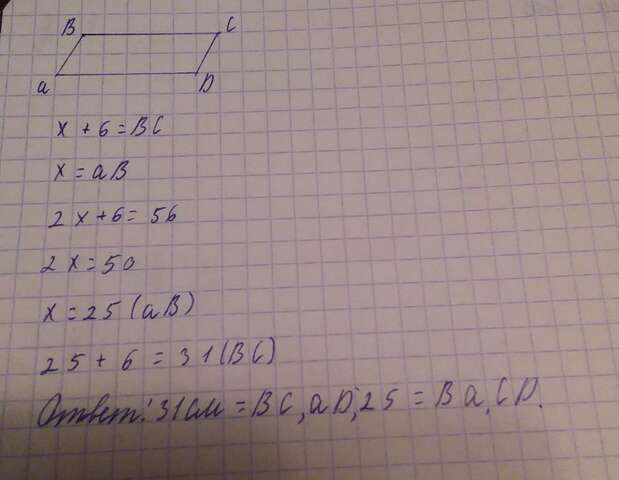 B C
a D
x + 6 = BC
x = aB
2x + 6 = 56
2x = 50
x = 25 (aB)
25 + 6 = 31 (BC)
Ответ: 31 см = BC, aD; 25 = Ba, CD.